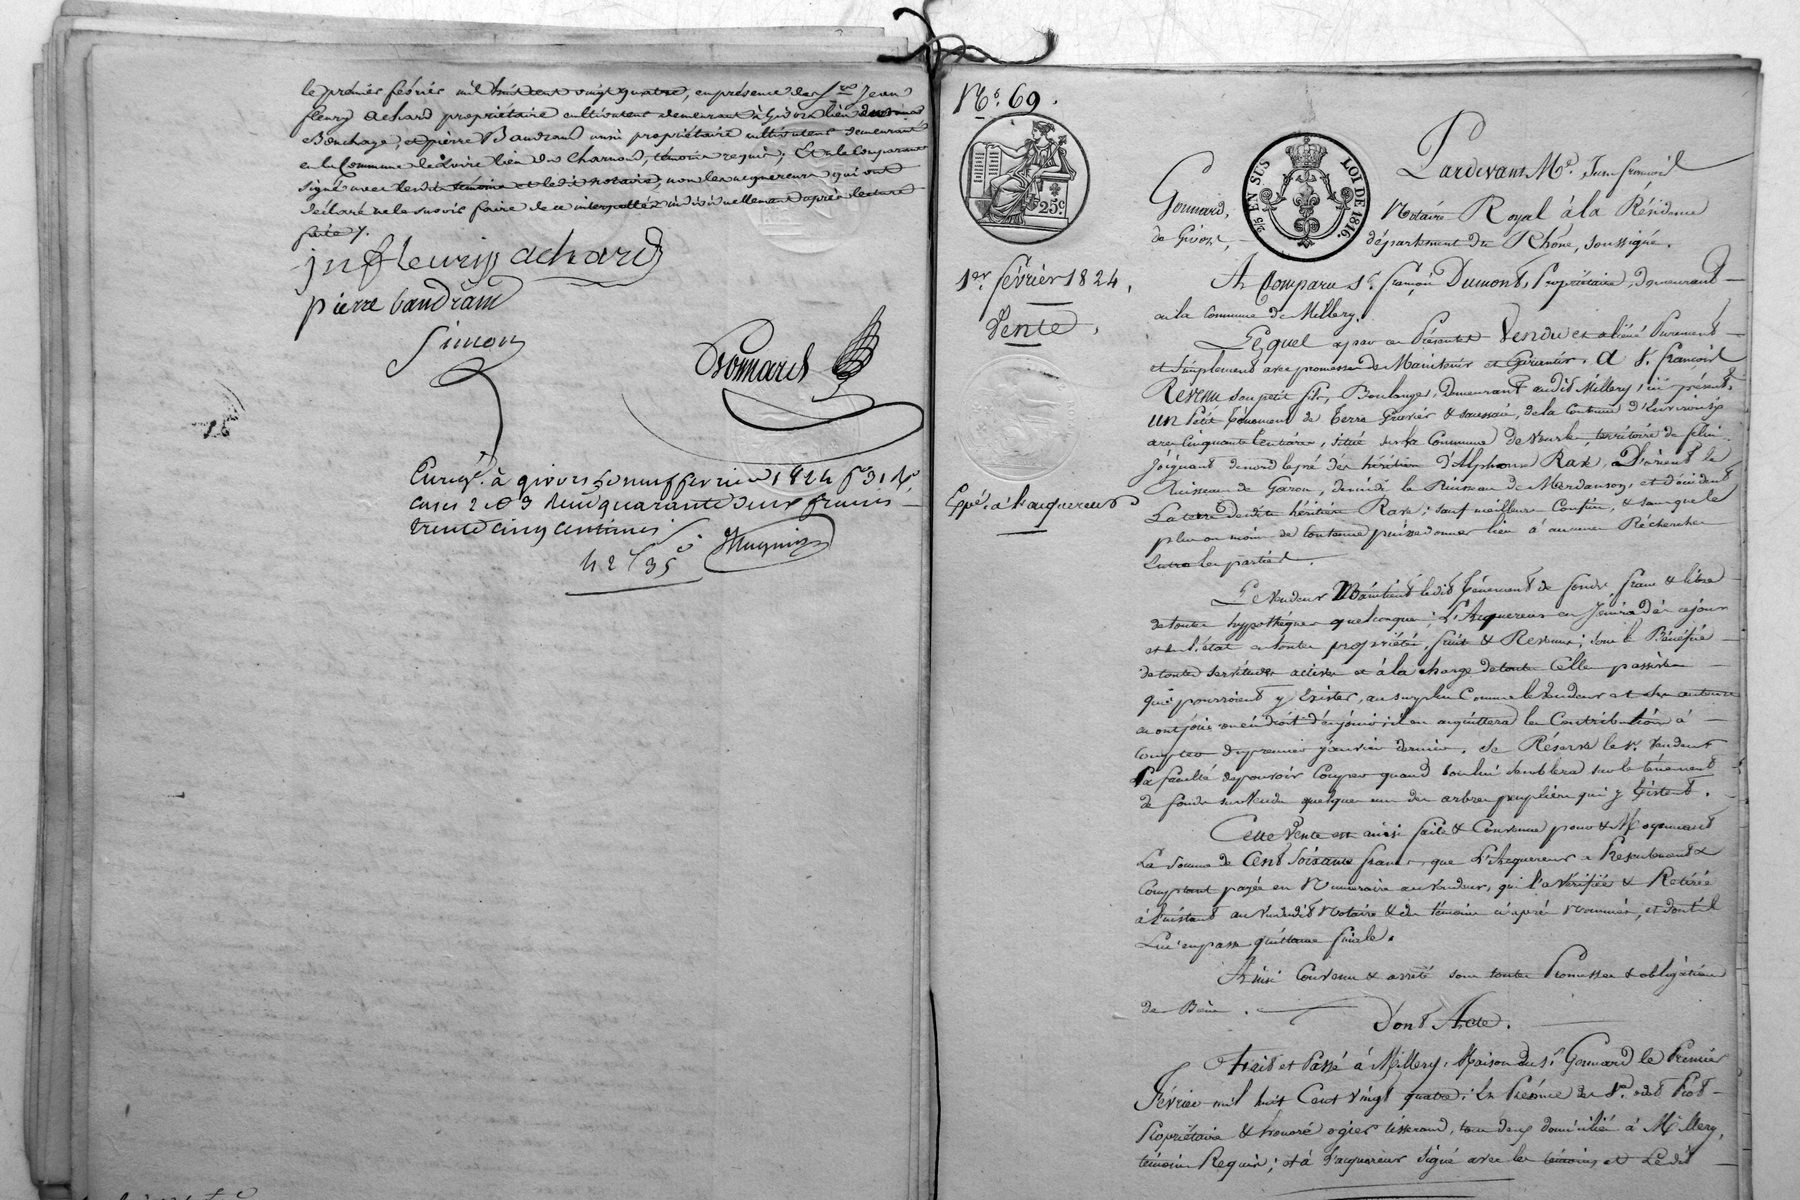 le premier février mil huit cent vingt quatre, en présence des Srs Jean
fleury achard propriétaire cultivateur demeurant à Givors lieu
Bonchage, et pierre Baudrand aussi propriétaire cultivateur demeurant
en la Commune de Loire lieu des Charnons, témoins requis; Et a le comparant
signé avec lesdits témoins et ledit notaire, non les acquéreurs qui ont
déclaré ne le savoir faire de ce interpellés individuellement après lecture
faite /.
jn fleury achard
pierre baudrand
Simon
Gonnard
Enregé. à givors le neuf fevrier 1824 fo 31 Vo.
cases 2 et 3 Reçu quarante deux francs
trente cinq centimes
42 f 35 c.
No. 69.
25c.
1er. février 1824.
Vente.
Expé. à l'acquereur
EN SUS LOI DE 1816.
Pardevant Me. Jean françois
Gonnard, Notaire Royal à la Résidence
de Givors, département du Rhône, soussigné.
A Comparu Sr. françois Dumont, Propriétaire, demeurant
en la Commune de Millery.
Lequel a par ces Présentes Vendu et aliéné Purement
et Simplement avec promesse de Maintenir et Garantir, A Sr. françois
Revenu son petit fils, Boulanger, demeurant audit Millery, ici présent,
un Petit Ténement de Terre Gravier & saussaie, de la Contenue d'Environ
ares Cinquante Centiares, situé sur la Commune de territoire de
Joignant de nord le pré des héritiers d'Alphonse Rax, D'orient le
Ruisseau de Garon, de midi le Ruisseau de Merdanson, et d'occident
La terre desdits héritiers Rax; sauf meilleurs Confins, & sans que le
plus ou moins de contenue puisse donner lieu à aucunes Récherches
Entre les parties.
Le Vendeur Maintient ledit Ténement de fonds, franc & libre
de toutes hypothéques quelconques; L'Acquereur en Jouira dès ce jour
et en l'état en toute propriété, fruits & Revenus; sous le Bénéfice
de toutes servitudes actives et à la charge de toutes Celles passives
qui pourroient y Exister, au surplus Comme le Vendeur et ses auteurs
en ont joui ou eu droit d'en jouir; il en acquittera les Contributions à
Compter du premier janvier dernier. Se Réserve le Sr. Vendeur
La faculté de pouvoir Couper quand bon lui semblera sur le ténement
de fonds sus Vendu quelques uns des arbres peupliers qui y Existent.
Cette Vente est ainsi faite & Convenue pour & Moyennant
La Somme de Cent Soixante francs que L'Acquereur a Présentement &
Comptant payée en Numeraire au Vendeur, qui l'a Vérifiée & Retirée
à L'instant au Vu dudit Notaire & des témoins ci après Nommés, et dont il
Lui en passe quittance finale.
Ainsi Convenu & arrêté sous toutes Promesses & obligations
de Biens.
Dont Acte.
Fait et Passé à Millery, Maison du Sr. Gonnard le Premier
Février mil huit Cent Vingt quatre; En Présence des Srs.
Propriétaire & honoré ogier tisserand, tous deux domiciliés à Millery,
témoins Requis; et à l'acquereur Signé avec les témoins et Ledit